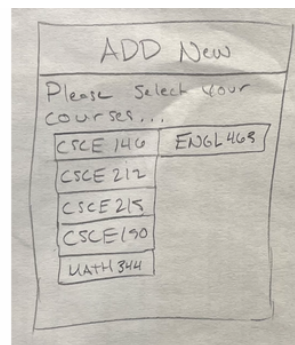 ADD New
Please Select Your
courses...
CSCE 146 ENGL 463
CSCE 212
CSCE 215
CSCE 190
MATH 344